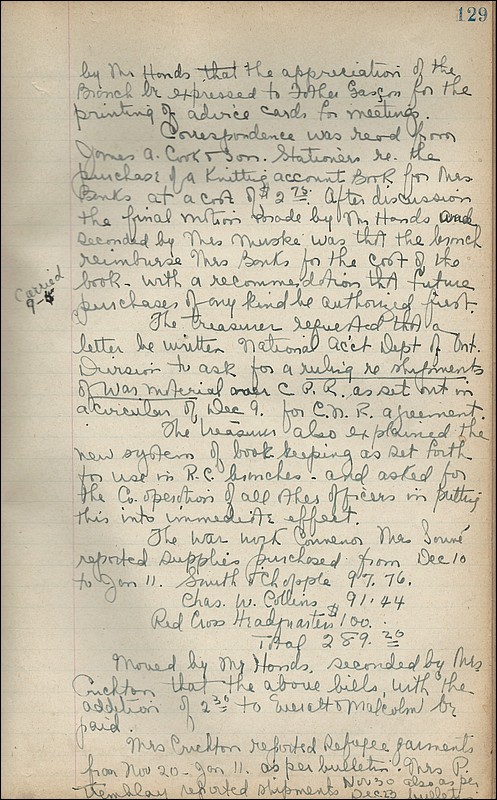 129
by Mr Hands that the appreciation of the
Branch be expressed to Father Gascon for the
printing of advice cards for meetings.
Correspondence was read from
James A. Cook & Son. Stationers re. the
purchase of a Knitting account Book for Mrs
Banks at a cost of $2.75. After discussion
the final motion made by Mr Hands and
seconded by Mrs Muske was that the branch
reimburse Mrs Banks for the cost of the
book - with a recommendation that future
purchases of any kind be authorized first.
Carried
The Treasurer requested that a
letter be written National Ac't Dept of Ont.
Division to ask for a ruling re shipments
of War material over C.P.R. as set out in
a circular of Dec 9. for C.N.R. agreement.
The treasurer also explained the
new system of book keeping as set forth
for use in R.C. branches - and asked for
the Co. operation of all other officers in putting
this into immediate effect.
The War work Convenor Mrs
reported supplies purchased from Dec 10
to Jan 11. Smith & Chapple 97.76.
Chas. W. Collins 91.44
Red Cross Headquarters $100.
Total 289.20
Moved by Mr Hands, seconded by Mrs
Crichton that the above bills, with the
addition of 2.30 to Everatt & Malcolm be
paid.
Mrs Crichton reported Refugee garments
from Nov 20 - Jan 11. as per bulletin. Mrs P.
Tremblay reported shipments Nov 30 also as per
Dec 23 bulletin